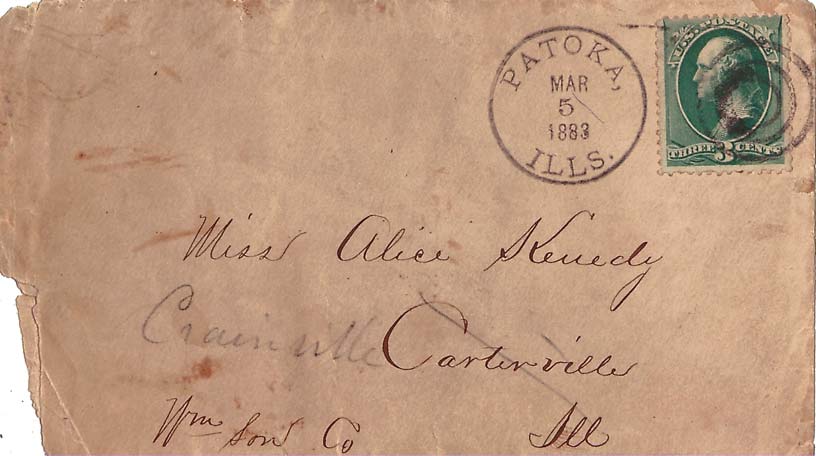 PATOKA,
MAR
5
1883
ILLS.
U.S. POSTAGE
THREE 3 CENTS
Miss Alice Kenedy
Crainville Carterville
Wm son Co Ill